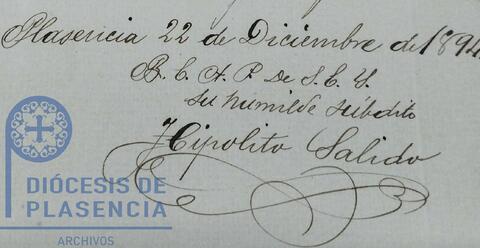 Plasencia 22 de Diciembre de 1894
B. E. A. P. De S. E. Y.
su humilde súbdito
Hipolito Salido
DIÓCESIS DE
PLASENCIA
ARCHIVOS